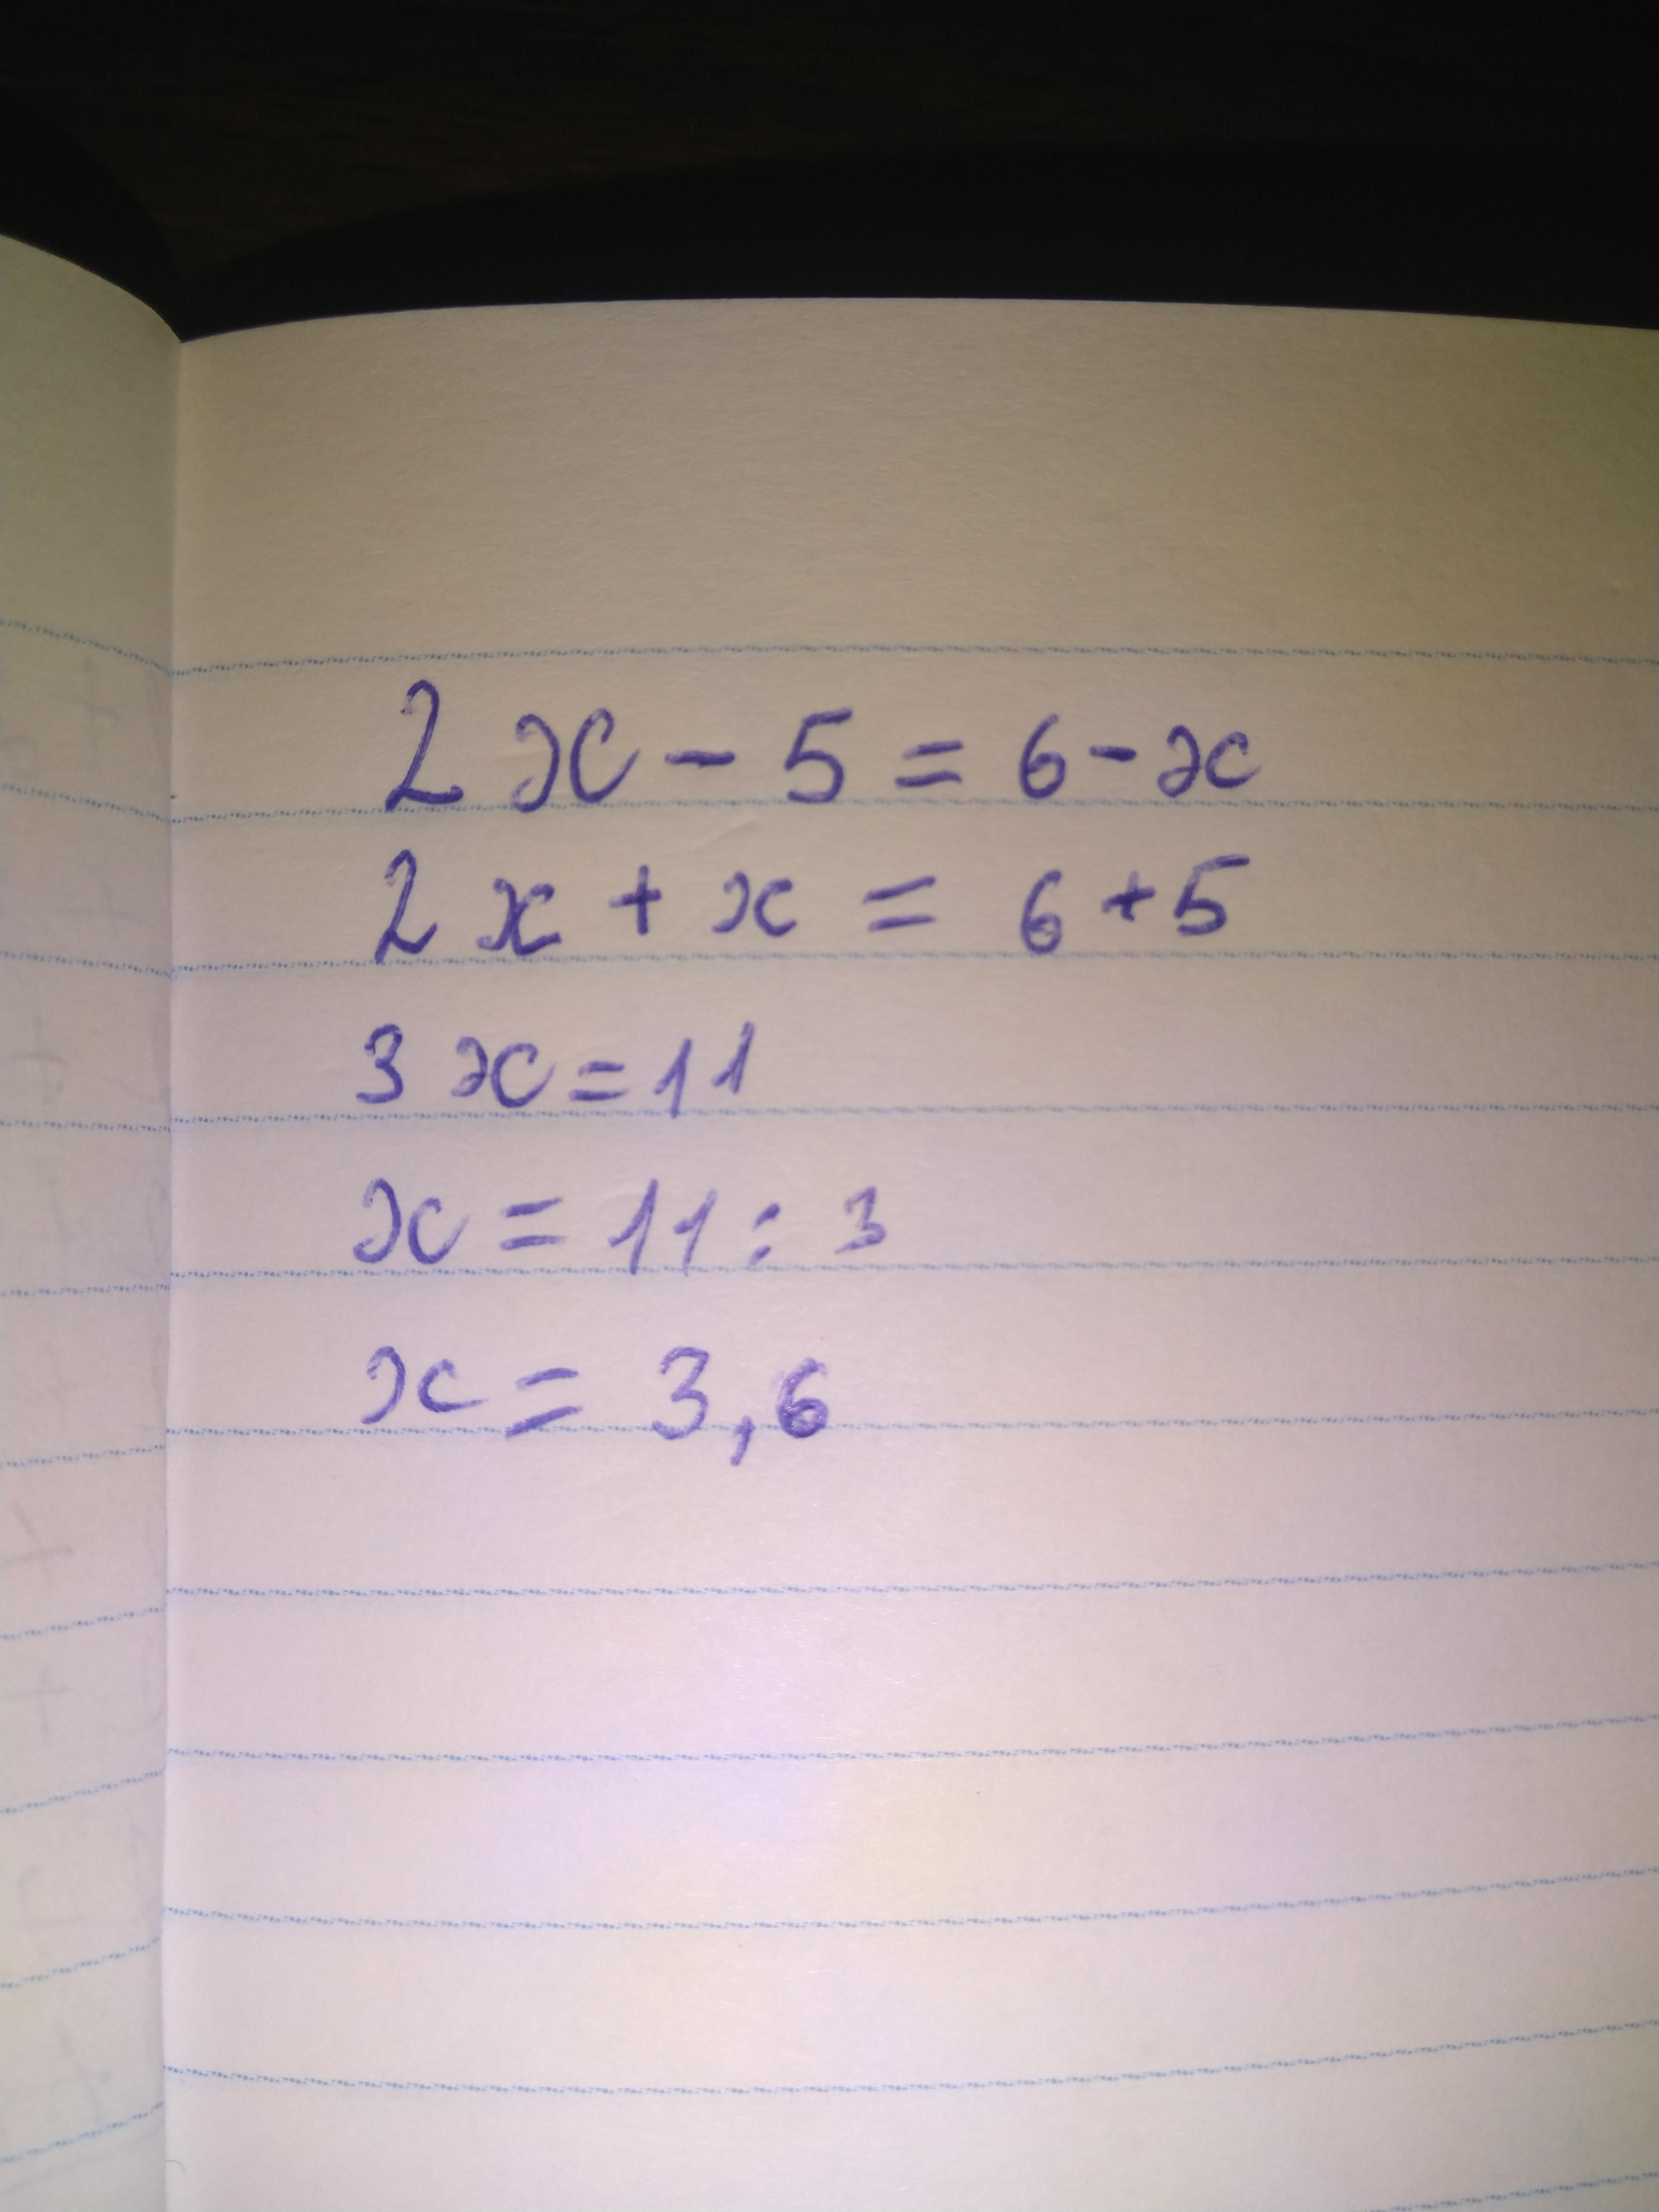 2x - 5 = 6 - x
2x + x = 6 + 5
3x = 11
x = 11 : 3
x = 3,6